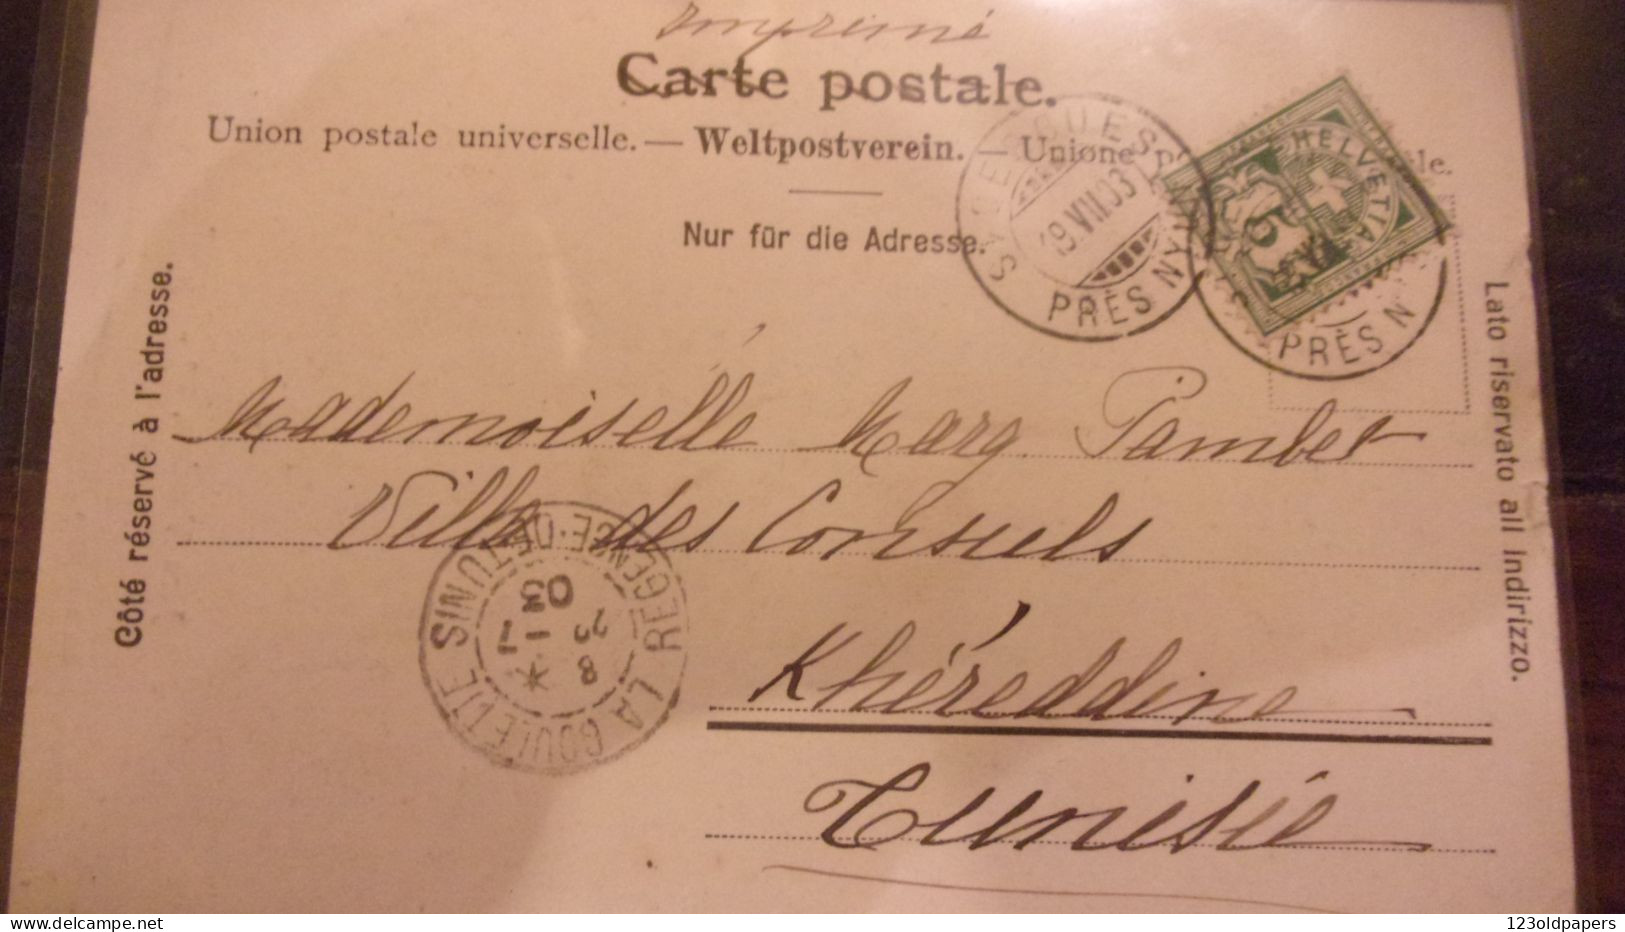 Imprimé
Carte postale.
Union postale universelle. — Weltpostverein. — Unione
Nur für die Adresse.
19.VIII.03
PRÈS N
HELVETIA
5
PRÈS N
Côté réservé à l'adresse.
Lato riservato all indirizzo.
Mademoiselle Marg. Pamber
Villa des Consuls
Khéreddine
Tunisie
LA GOULETTE
REGENCE·DE·TUNIS
8
23
03
123oldpapers